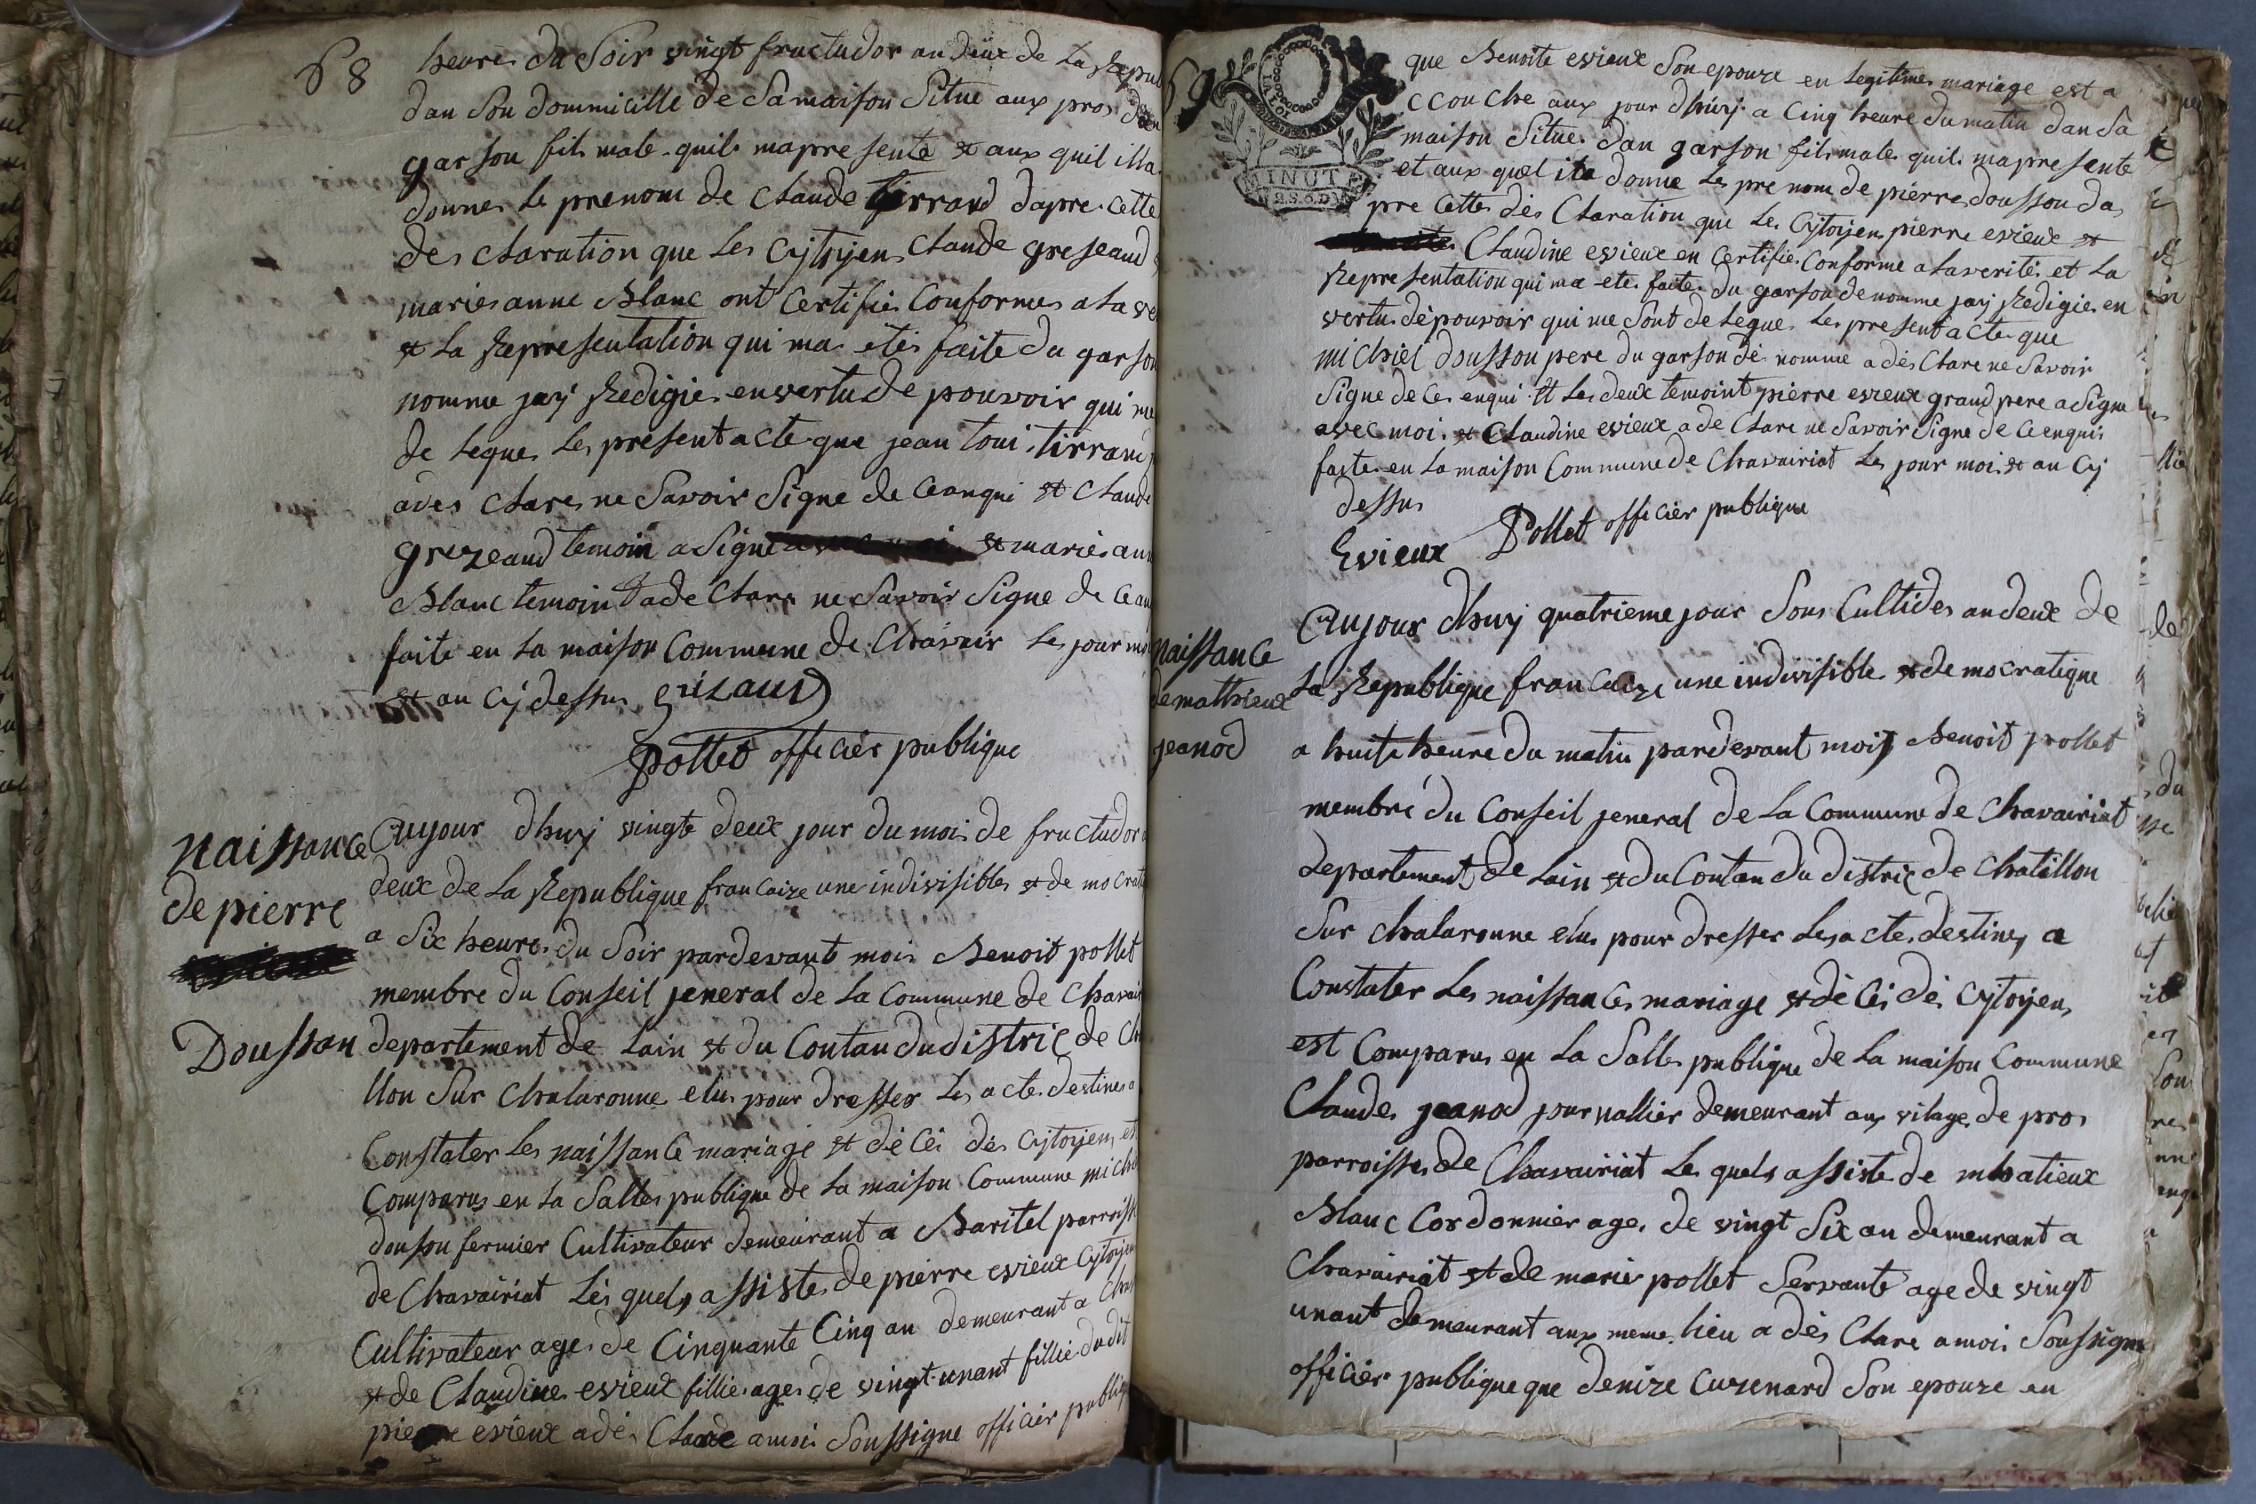 68
heure du soir vingt fructudor an deux de La Repu
dan son dommicille de sa maison situé aux pros dun
garson fils male quil mapresente et aux quil illa
donner Le prenom de Claude tirrand dapre cette
des claration que Les Cytoyens Claude greseaud
marie anne Blanc ont Certifie Conforme a La ve
et La Representation qui ma etés faite du garson
nomme jay Redigie en vertu de pouvoir qui me
de Legue Les present acte que jean Loui tirrand
a des clare ne savoir signe de Ceanqui et Claude
grezeaud temoin a signe et marie ann
Blanc temoin a de Clare ne savoir signe de Cean
faite en La maison Commune de Chavair Le jour moi
et an Cy dessus grizaud
Pollet officier publique
naissance
de pierre
Dousson
Aujour dhuy vingte deux jour du mois de fructudor
deux de La Republique francaize une indivisible et de mocrati
a six heure du soir pardevant moi Benoit pollet
membre du Conseil jeneral de La Commune de Chavair
departement de Lain et du Contan du distric de Ch
llon sur Chalaronne elus pour dresser Les acte destines a
Constater Les naissance mariage et dé Cei dés Cytoyens et
Comparus en La Salle publique de La maison Commune mich
dousson fermier Cultivateur demeurant a Baritel parroisse
de Chavairiat Les quels assiste de pierre evieux Cytoyen
Cultivateur age de Cinquante Cinq an demeurant a Cha
et de Claudine evieux fillie age de vingt unant fillie dudit
pierre evieux a dés Clare a moi soussigne officier publiq
69
que Benoite evieux son epouze en Legitime mariage est a
ccouche aux jour dhuy a Cinq heure du matin dan sa
maison situe dan garson fils male quil mapresente
et aux quel ila donne Les pre nom de pierre dousson da
pre Cette dés Claration que Les Cytoyen pierre evieux et
Claudine evieux en Certifie Conforme a La verité et La
Representation qui ma ete faite du garson de nomme jay Redigie en
vertu dépouvoir qui me sont de Legue Les present acte que
michiel dousson pere du garson dé nomme a dés Clare ne savoir
signe de Ce enqui et Les deux temoint pierre evieux grand pere a signe
avec moi et Claudine evieux a de Clare ne savoir signe de Ce enquis
faite en La maison Commune de Chavairiat Les jour moi et an Cy
dessus
Evieux Pollet officier publique
naissance
de mathieux
jeanod
Aujour dhuy quatrieme jour sans Cultides an deux de
La Republique francaize une indivisible et de mocratique
a huite heure du matin pardevant moi Benoit pollet
membre du Conseil jeneral de La Commune de Chavairiat
departement de Lain et du Contan du distric de Chatillon
sur Chalaronne elus pour dresser Les acte destines a
Constater Les naissances mariage et dé Cei dés Cytoyens
est Comparus en La Salle publique de La maison Commune
Claude jeanod journallier demeurant aux vilage de pros
parroisse de Chavairiat Les quels assiste de mhatieux
Blanc Cordonnier age de vingt six an demeurant a
Chavairiat et de marie pollet servante age de vingt
unant demeurant aux meme lieu a dés Clare a moi soussigne
officier publique que denize Cuzenard son epouze en